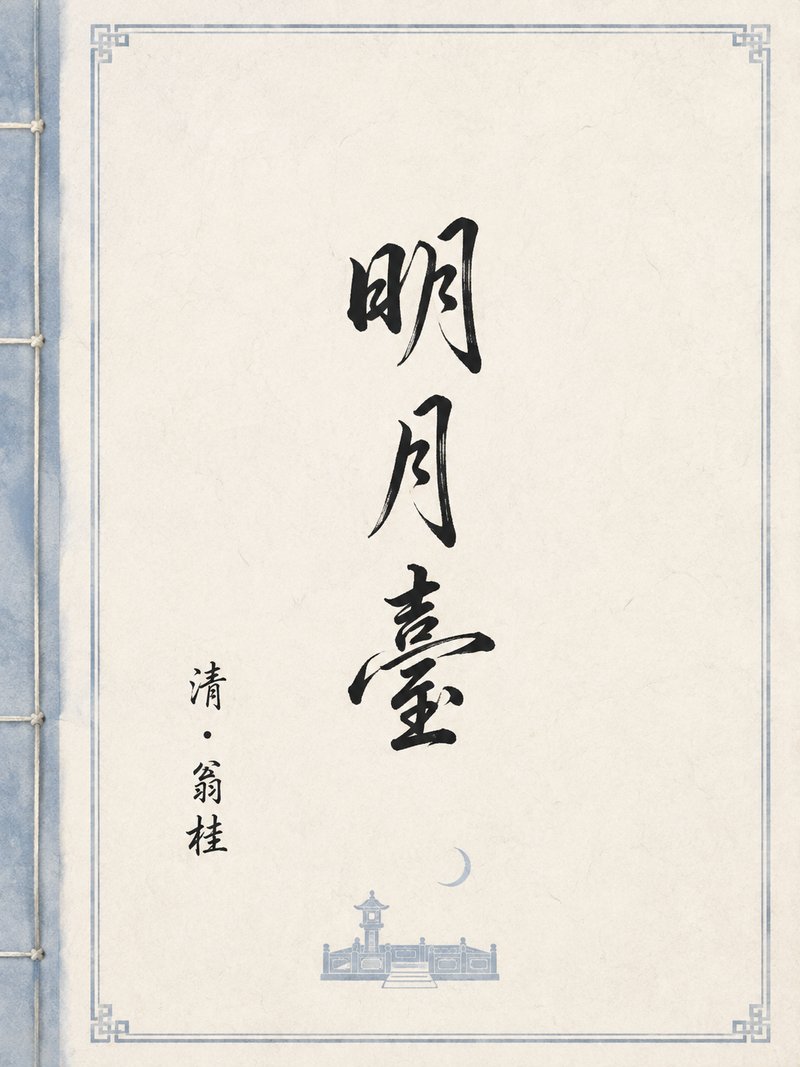 明月臺
清·翁桂